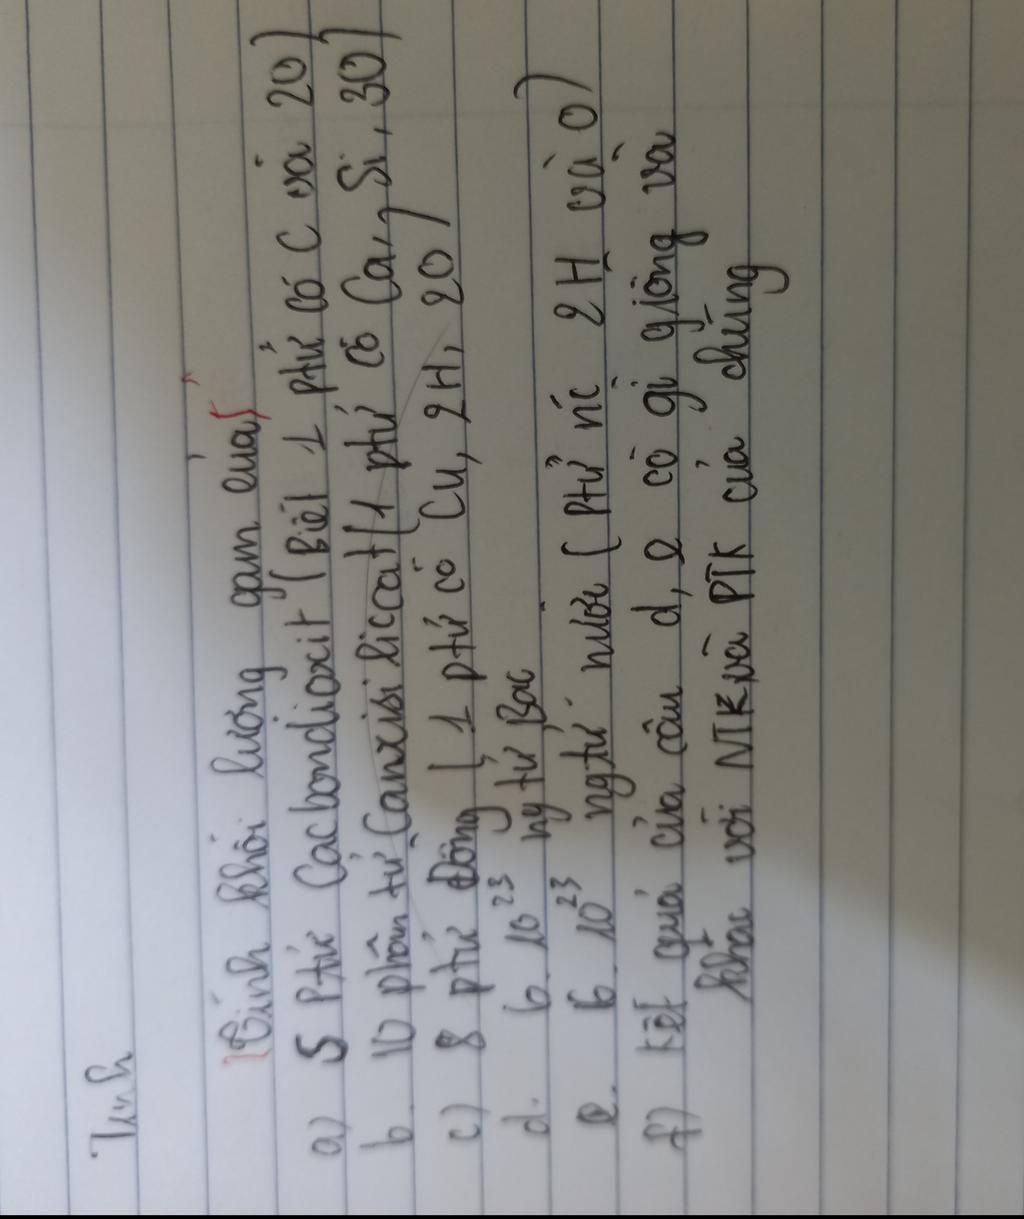 Tính
Tính khối lượng gam của
a) 5 ptử Cacbondioxit (Biết 1 ptử có C và 2O)
b. 10 phân tử Canxisiliccat (1 ptử có Ca, Si, 3O)
c) 8 ptử Đồng (1 ptử có Cu, 2H, 2O)
d. 6.10²³ ngtử Bạc
e. 6.10²³ ngtử nước (ptử nc 2H và O)
f) Kết quả của câu d, e có gì giống và
khác với NTK và PTK của chúng